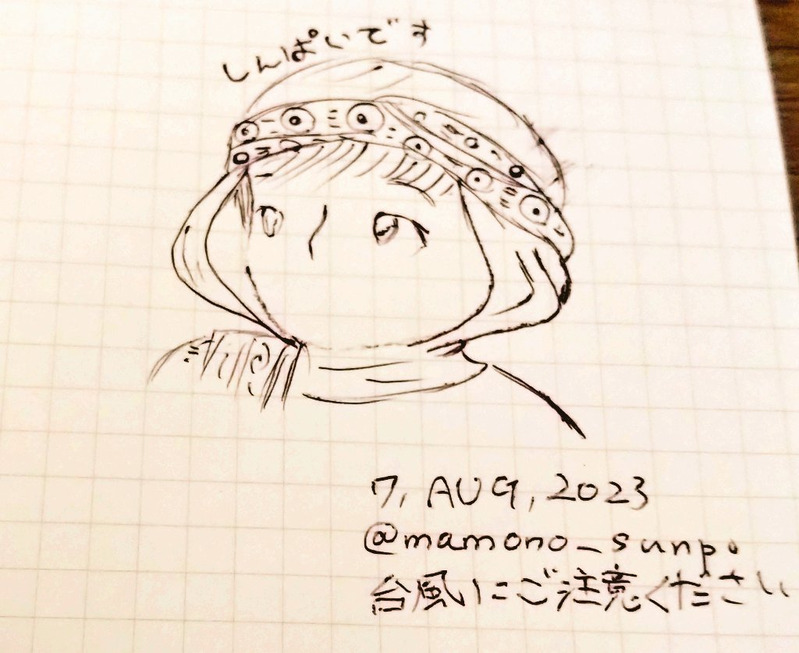 しんぱいです
7, AUG, 2023
@mamono_sunpo
台風にご注意ください